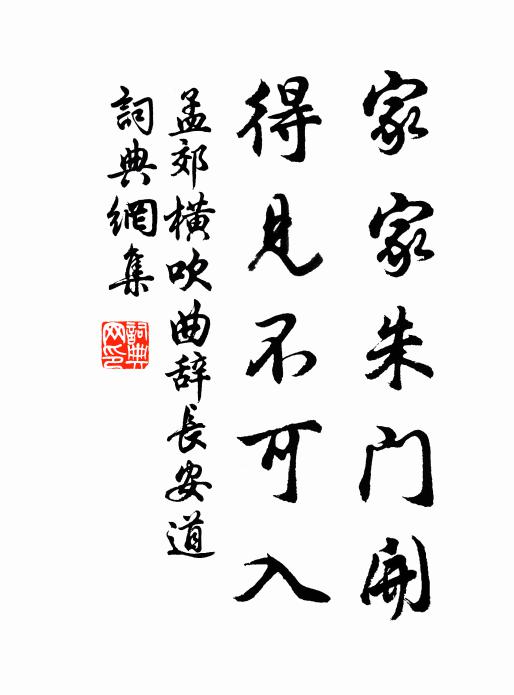 家家朱门開
得見不可入
孟郊橫吹曲辞長安道
詞典網集
詞典网印